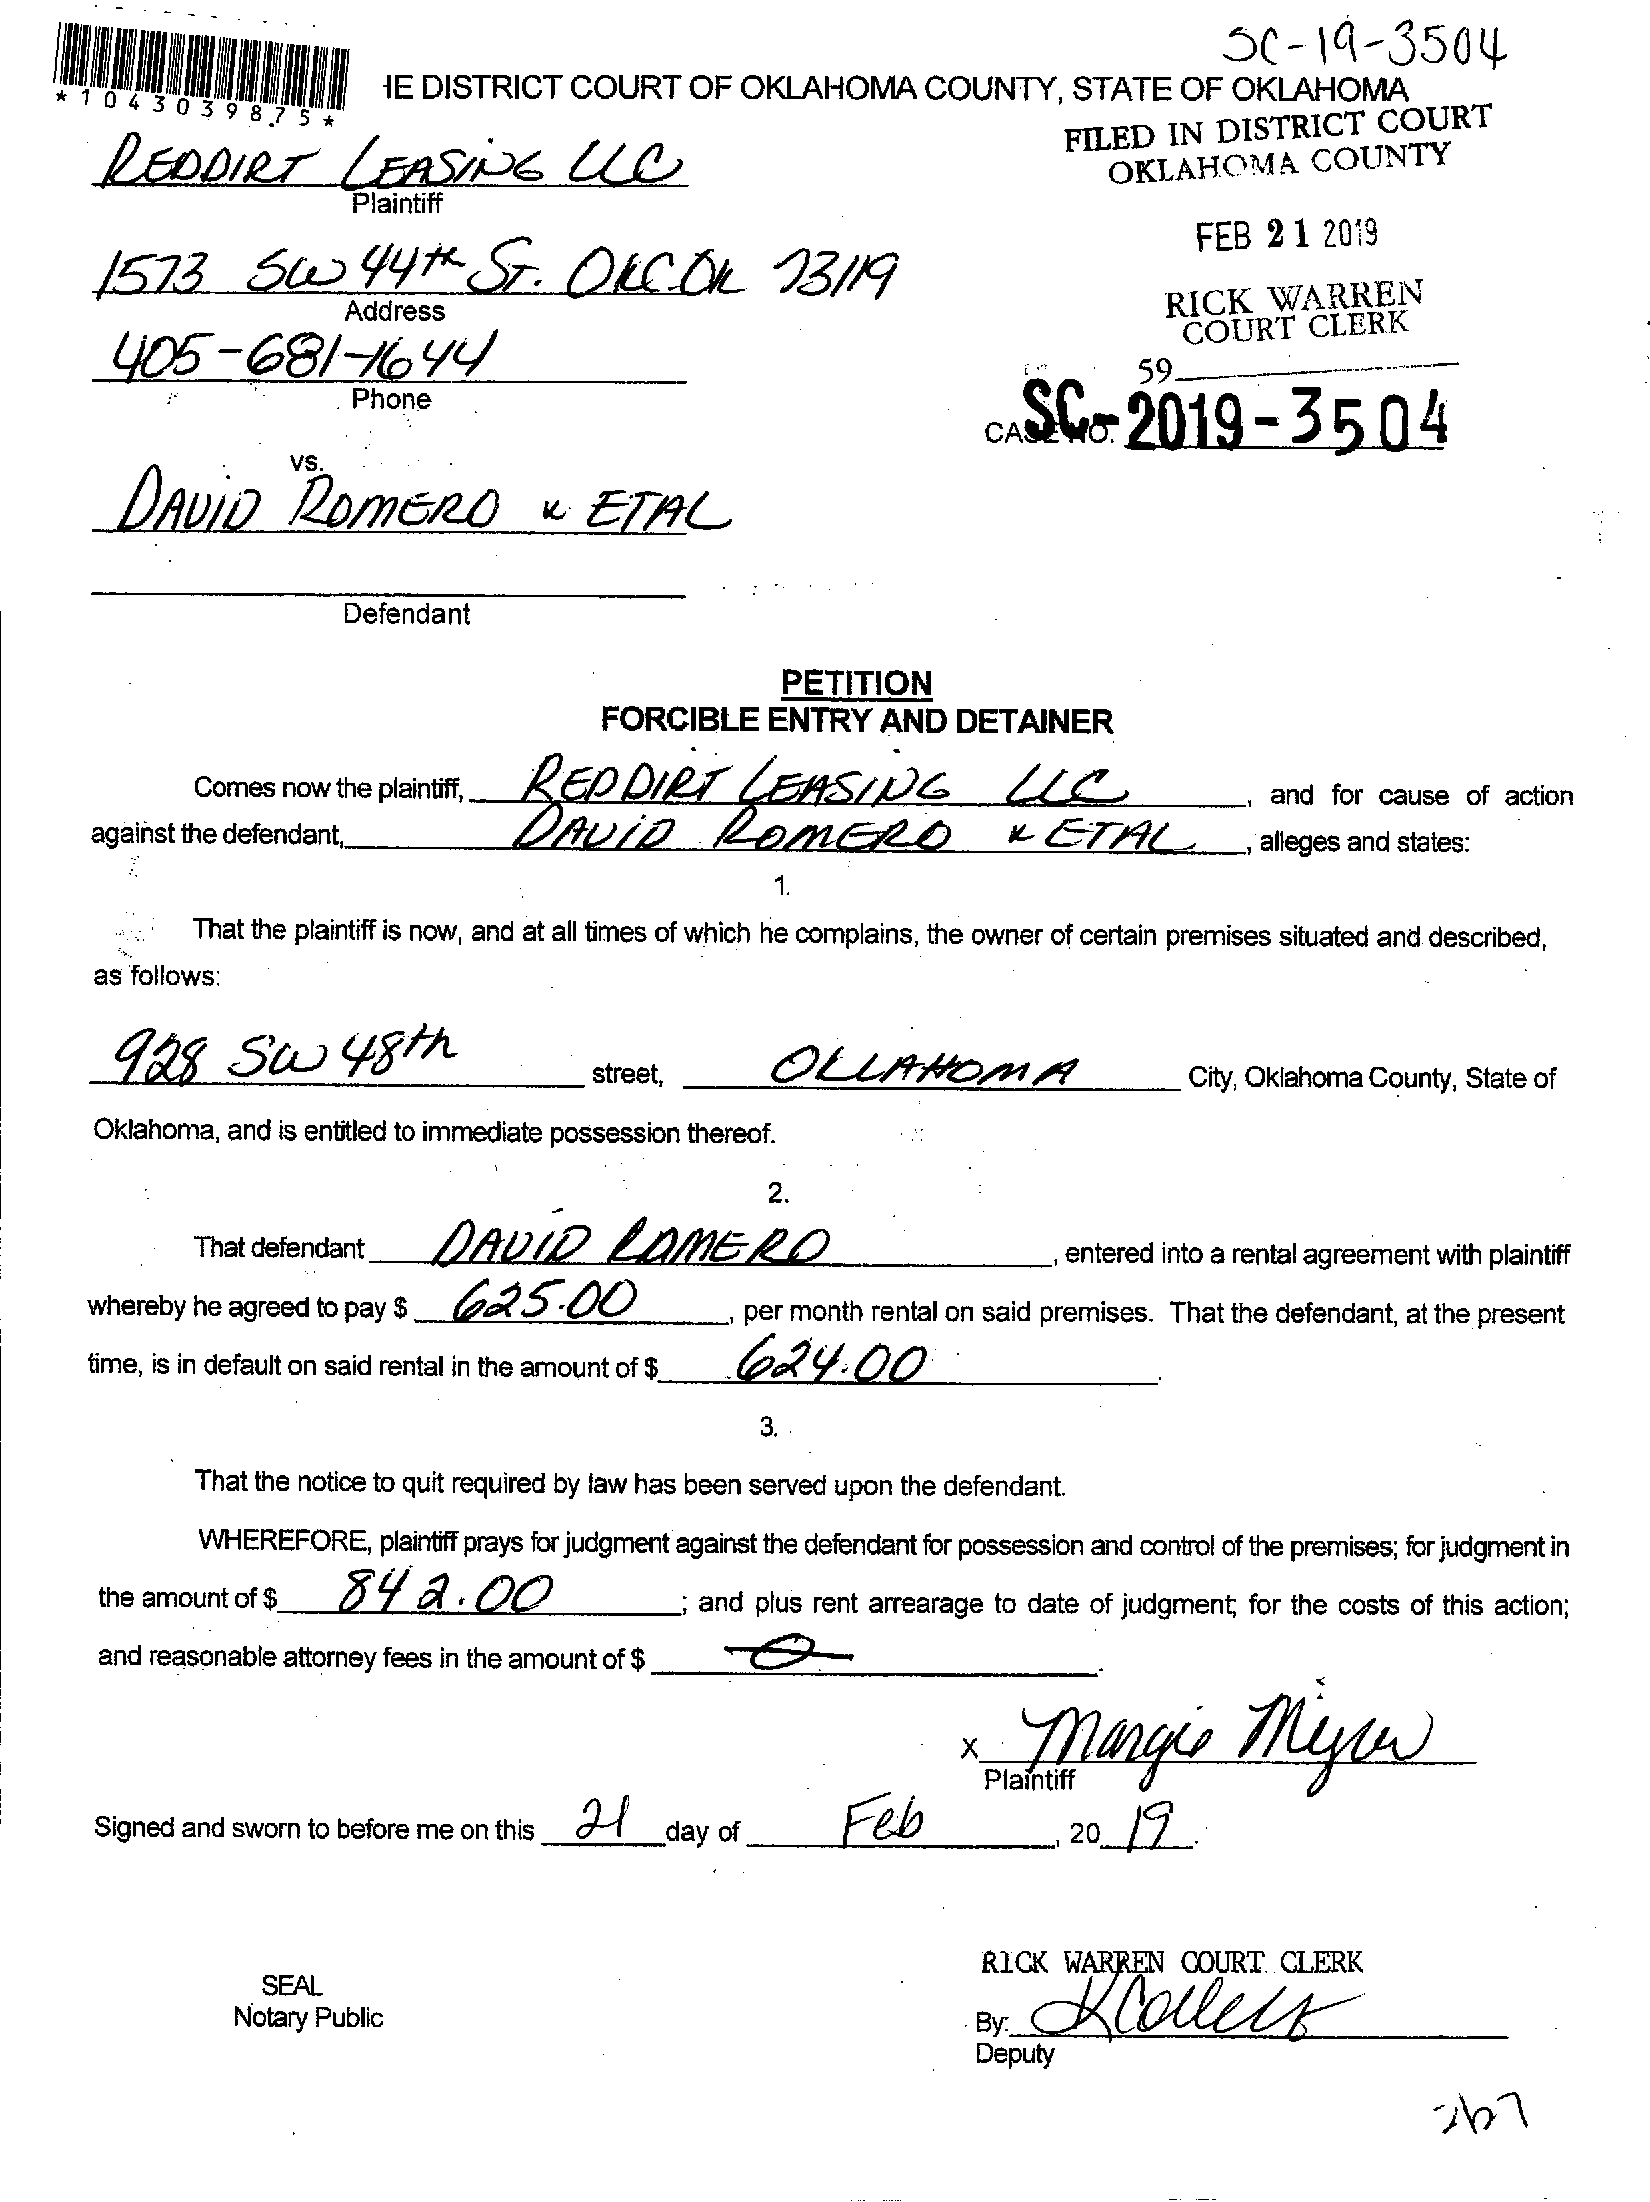 SC-19-3504
*1043039875*
IE DISTRICT COURT OF OKLAHOMA COUNTY, STATE OF OKLAHOMA
FILED IN DISTRICT COURT
OKLAHOMA COUNTY
REDDIRT LEASING LLC
Plaintiff
FEB 21 2019
1573 SW 44th ST. OKC OK 73119
Address
RICK WARREN
COURT CLERK
405-681-1644
Phone
59
CASE NO. SC-2019-3504
vs.
DAVID ROMERO & ETAL
Defendant
PETITION
FORCIBLE ENTRY AND DETAINER
Comes now the plaintiff, REDDIRT LEASING LLC, and for cause of action
against the defendant, DAVID ROMERO & ETAL, alleges and states:
1.
That the plaintiff is now, and at all times of which he complains, the owner of certain premises situated and described,
as follows:
928 SW 48th street, OLLAHOMA City, Oklahoma County, State of
Oklahoma, and is entitled to immediate possession thereof.
2.
That defendant DAVID ROMERO, entered into a rental agreement with plaintiff
whereby he agreed to pay $ 625.00, per month rental on said premises. That the defendant, at the present
time, is in default on said rental in the amount of $ 624.00.
3.
That the notice to quit required by law has been served upon the defendant.
WHEREFORE, plaintiff prays for judgment against the defendant for possession and control of the premises; for judgment in
the amount of $ 842.00; and plus rent arrearage to date of judgment; for the costs of this action;
and reasonable attorney fees in the amount of $ 0.
X Margie Meyer
Plaintiff
Signed and sworn to before me on this 21 day of Feb, 2019.
RICK WARREN COURT CLERK
SEAL
Notary Public
By:
Deputy